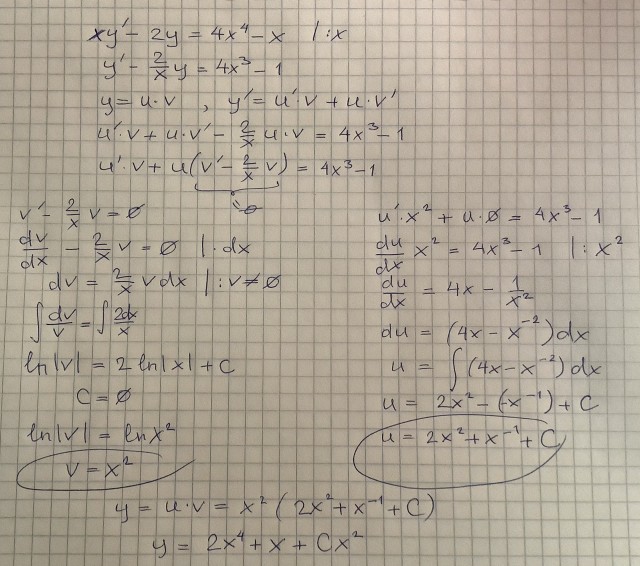 xy' - 2y = 4x⁴ - x |:x
y' - 2/x y = 4x³ - 1
y = u·v , y' = u'·v + u·v'
u'·v + u·v' - 2/x u·v = 4x³ - 1
u'·v + u(v' - 2/x v) = 4x³ - 1
= 0
v' - 2/x v = ∅
dv/dx - 2/x v = ∅ |·dx
dv = 2/x v dx |: v ≠ ∅
∫ dv/v = ∫ 2dx/x
ln|v| = 2 ln|x| + C
C = ∅
ln|v| = ln x²
v = x²
u'·x² + u·∅ = 4x³ - 1
du/dx x² = 4x³ - 1 |: x²
du/dx = 4x - 1/x²
du = (4x - x⁻²) dx
u = ∫ (4x - x⁻²) dx
u = 2x² - (-x⁻¹) + C
u = 2x² + x⁻¹ + C
y = u·v = x² (2x² + x⁻¹ + C)
y = 2x⁴ + x + Cx²